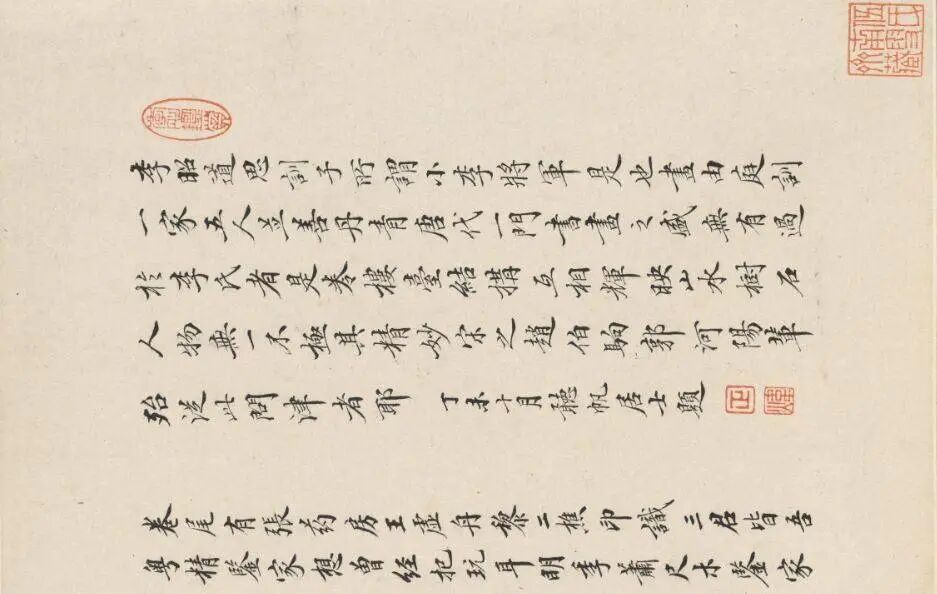 李昭道思訓子所謂小李將軍是也畫由庭訓
一家五人並善丹青唐代一門書畫之盛無有過
於李氏者是卷樓臺結構互相輝映山水樹石
人物無一不極其精妙宋之趙伯駒郭河陽輩
殆從此問津者耶 丁未十月聽帆居士題
正 煒
卷尾有張药房王虛舟黎二樵印識三君皆吾
粵精鑒家想曾經把玩耳明季蕭尺木鑒家